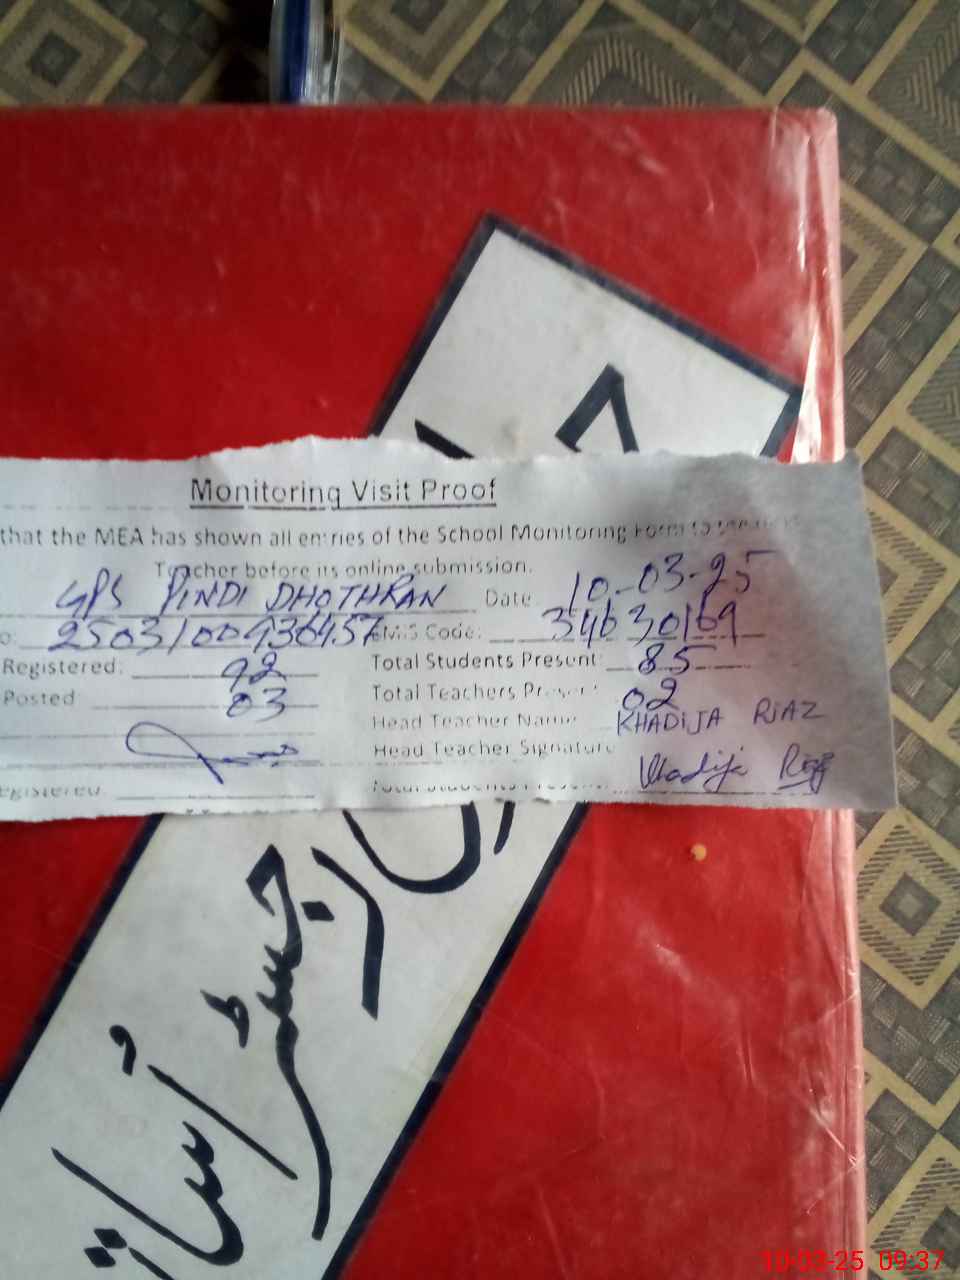 Monitoring Visit Proof
that the MEA has shown all entries of the School Monitoring Form to
Teacher before its online submission.
GPS PINDI DHOTHRAN Date 10-03-25
o: 250310093645 EMIS Code: 34630169
Registered: 92 Total Students Present: 85
Posted 03 Total Teachers Present: 02
Head Teacher Name KHADIJA RIAZ
Head Teacher Signature Khadija Riaz
egistered: Total Students Present:
رجسٹر
10-03-25 09:37